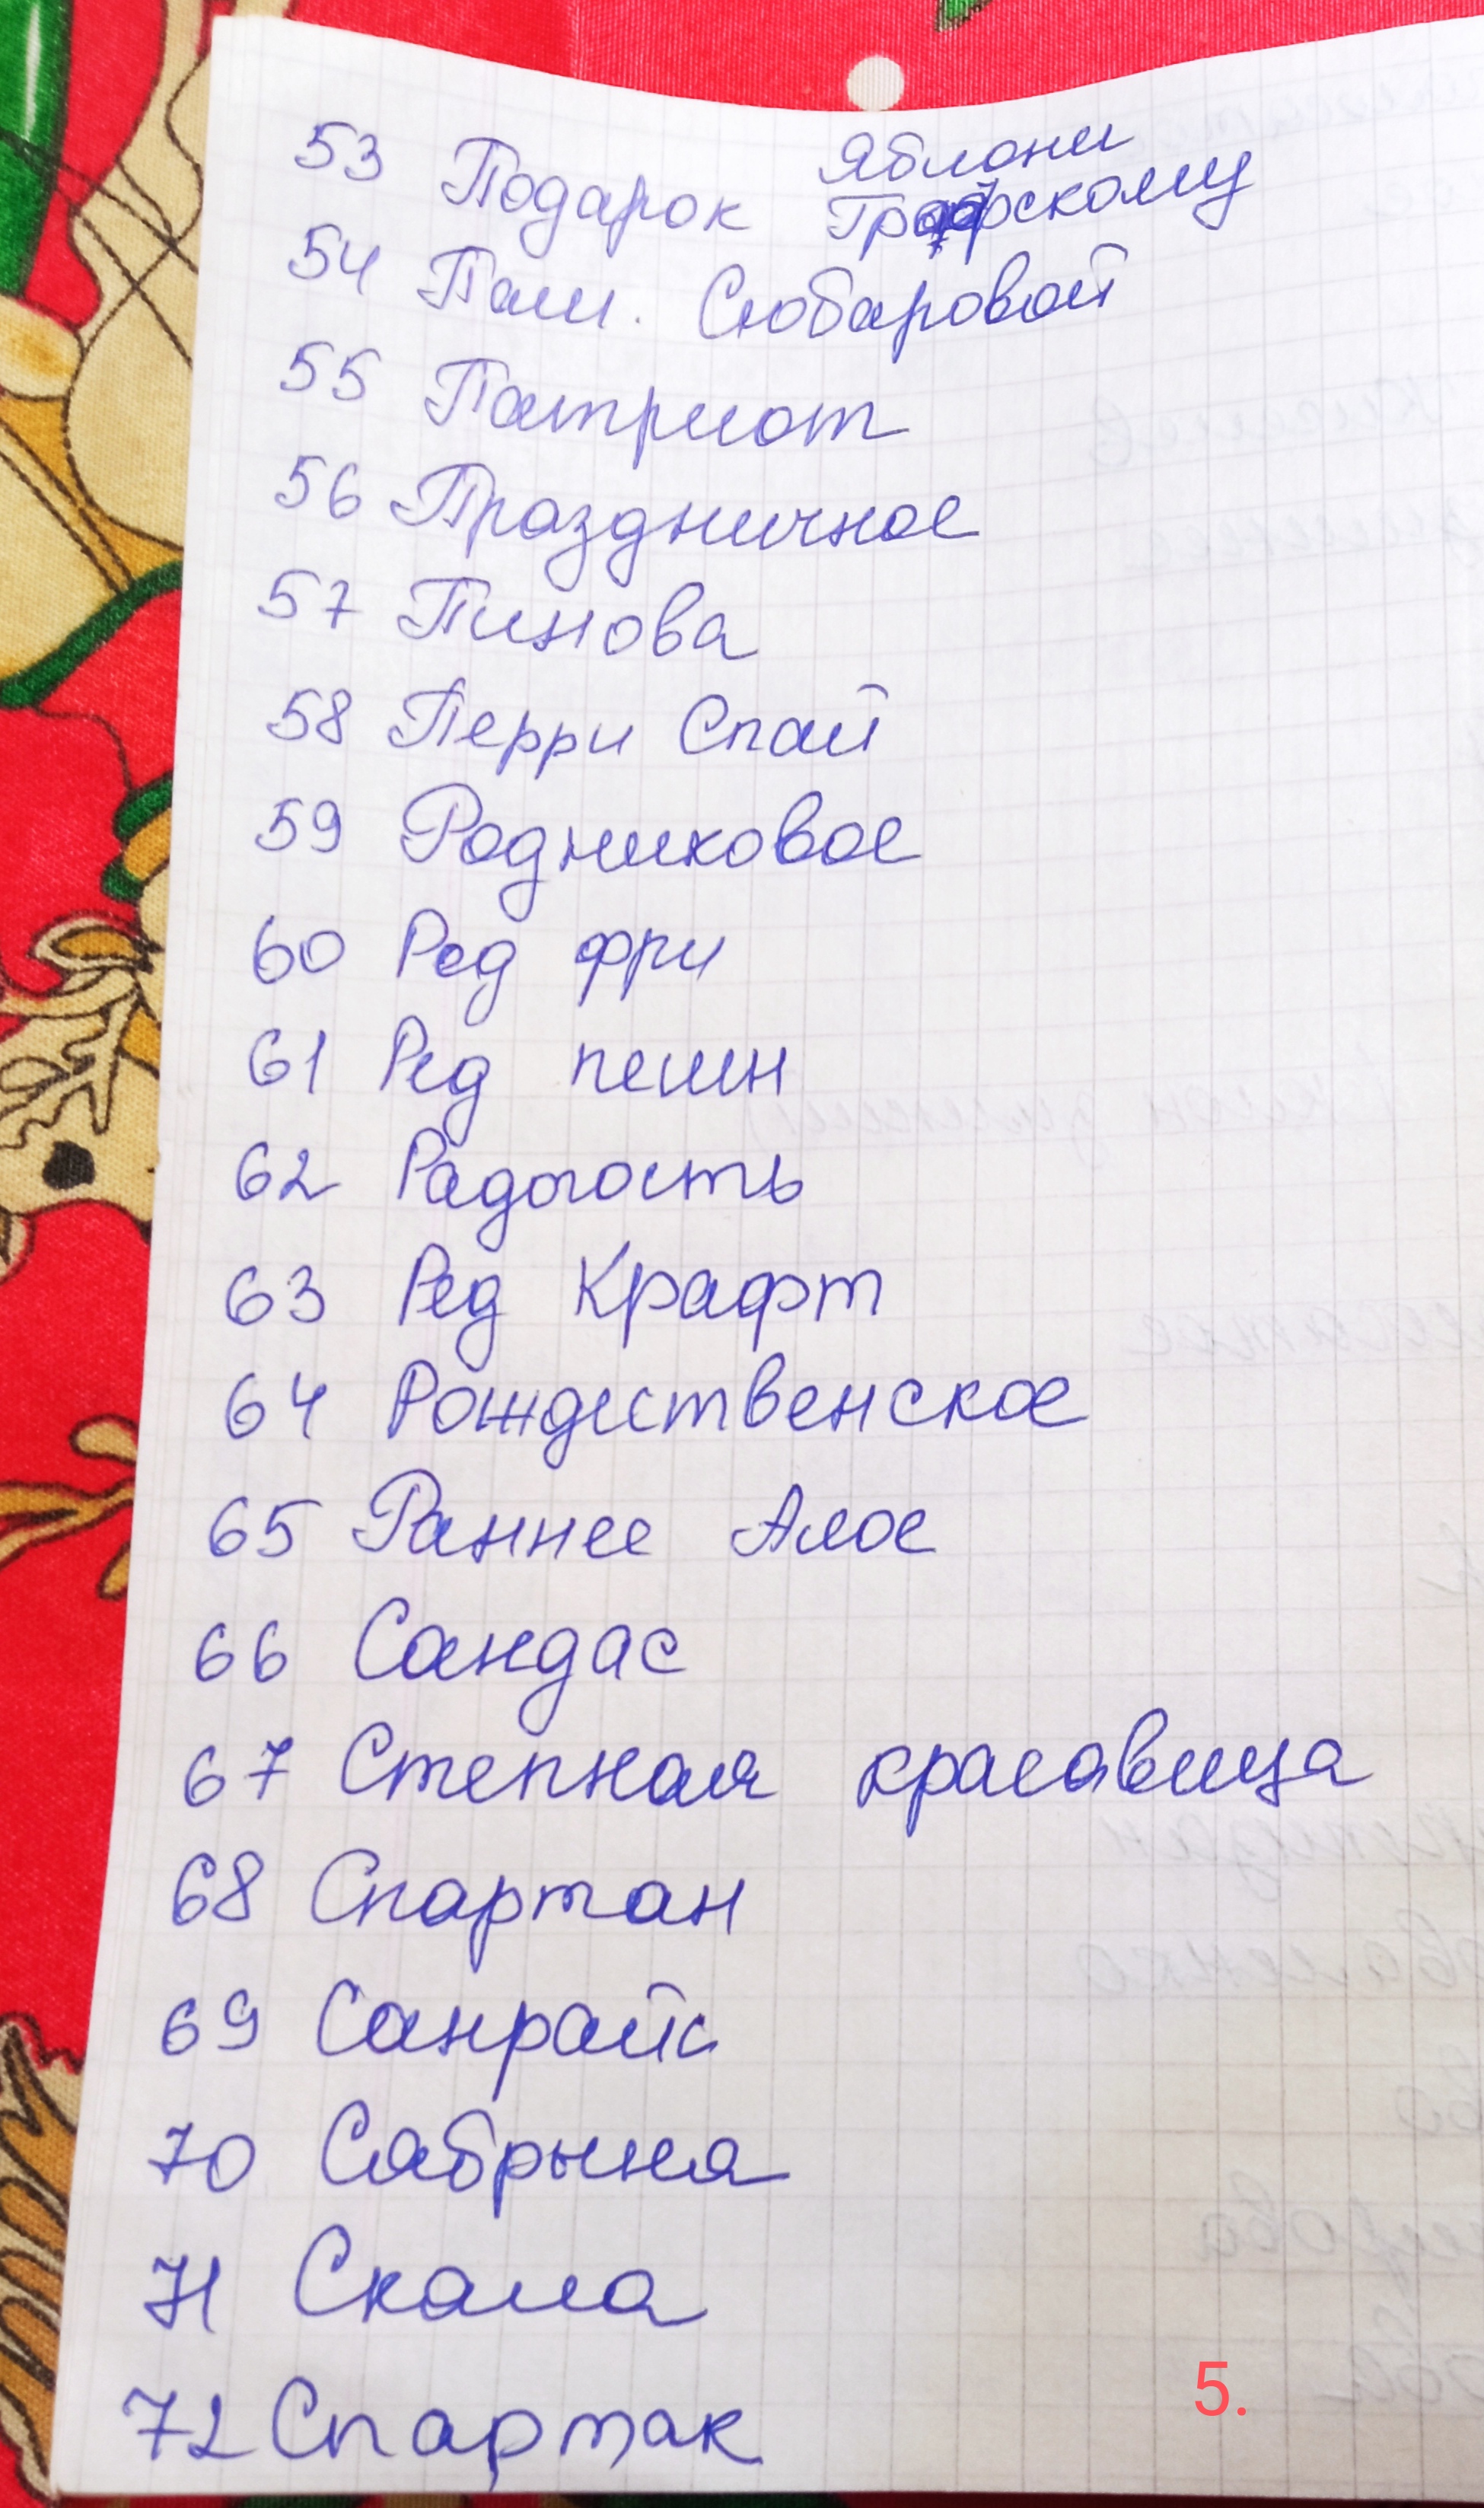 Яблони
53 Подарок Графскому
54 Пам. Сюбаровой
55 Патриот
56 Праздничное
57 Пинова
58 Перри Спай
59 Родниковое
60 Ред фри
61 Ред пешн
62 Радогость
63 Ред Крафт
64 Рождественское
65 Раннее Алое
66 Сандас
67 Степная красавица
68 Спартан
69 Санрайс
70 Сябрына
71 Скала
72 Спартак
5.